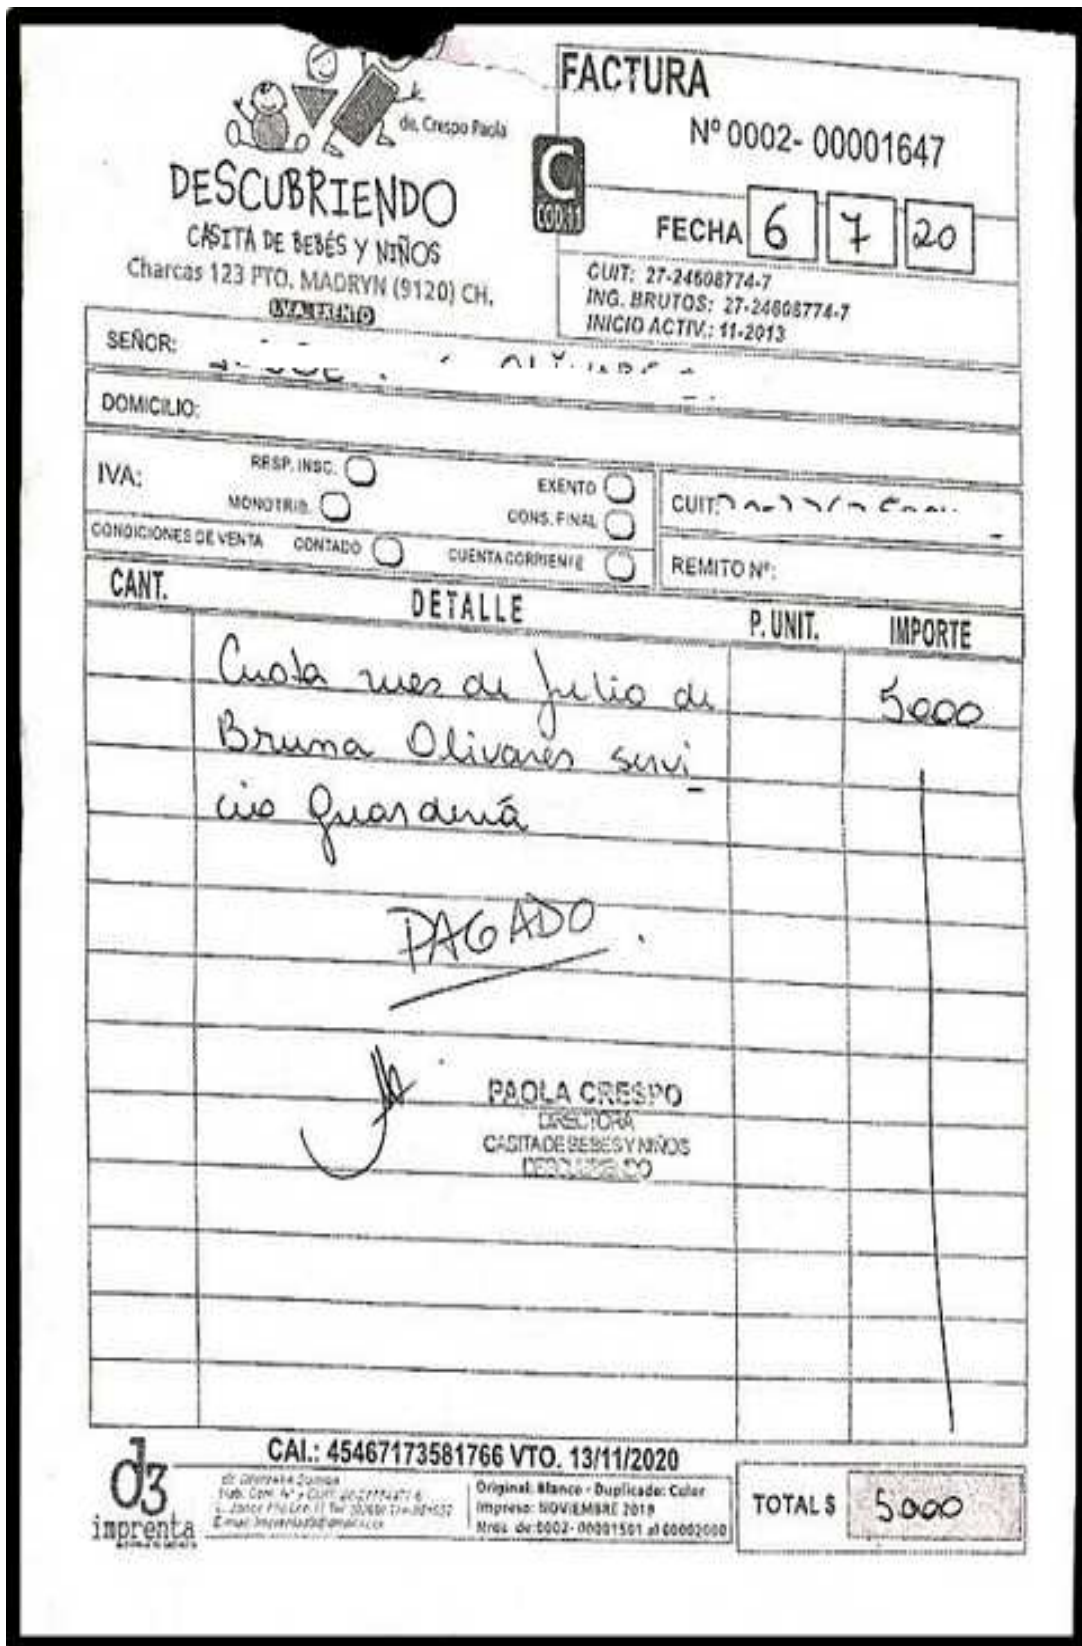 de. Crespo Paola
DESCUBRIENDO
CASITA DE BEBÉS Y NIÑOS
Charcas 123 PTO. MADRYN (9120) CH.
I.V.A. EXENTO
FACTURA
Nº 0002- 00001647
C
COD.11
FECHA 6 7 20
CUIT: 27-24608774-7
ING. BRUTOS: 27-24608774-7
INICIO ACTIV.: 11-2013
SEÑOR:
DOMICILIO:
IVA: RESP. INSC. EXENTO
MONOTRIB. CONS. FINAL
CUIT:
CONDICIONES DE VENTA CONTADO CUENTA CORRIENTE
REMITO Nº:
CANT. DETALLE P. UNIT. IMPORTE
Cuota mes de Julio de 5000
Bruna Olivares servi_
cio Guardería
PAGADO.
PAOLA CRESPO
DIRECTORA
CASITA DE BEBES Y NIÑOS
DESCUBRIENDO
d3
imprenta
CAI.: 45467173581766 VTO. 13/11/2020
Original: Blanco - Duplicado: Color
Impreso: NOVIEMBRE 2019
Nros. de:0002- 00001501 al 00002000
TOTAL $ 5000